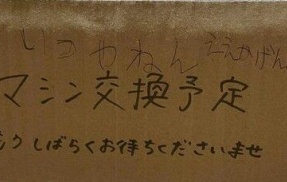 いつやねん ええかげん
マシン交換予定
しばらくお待ちくださいませ